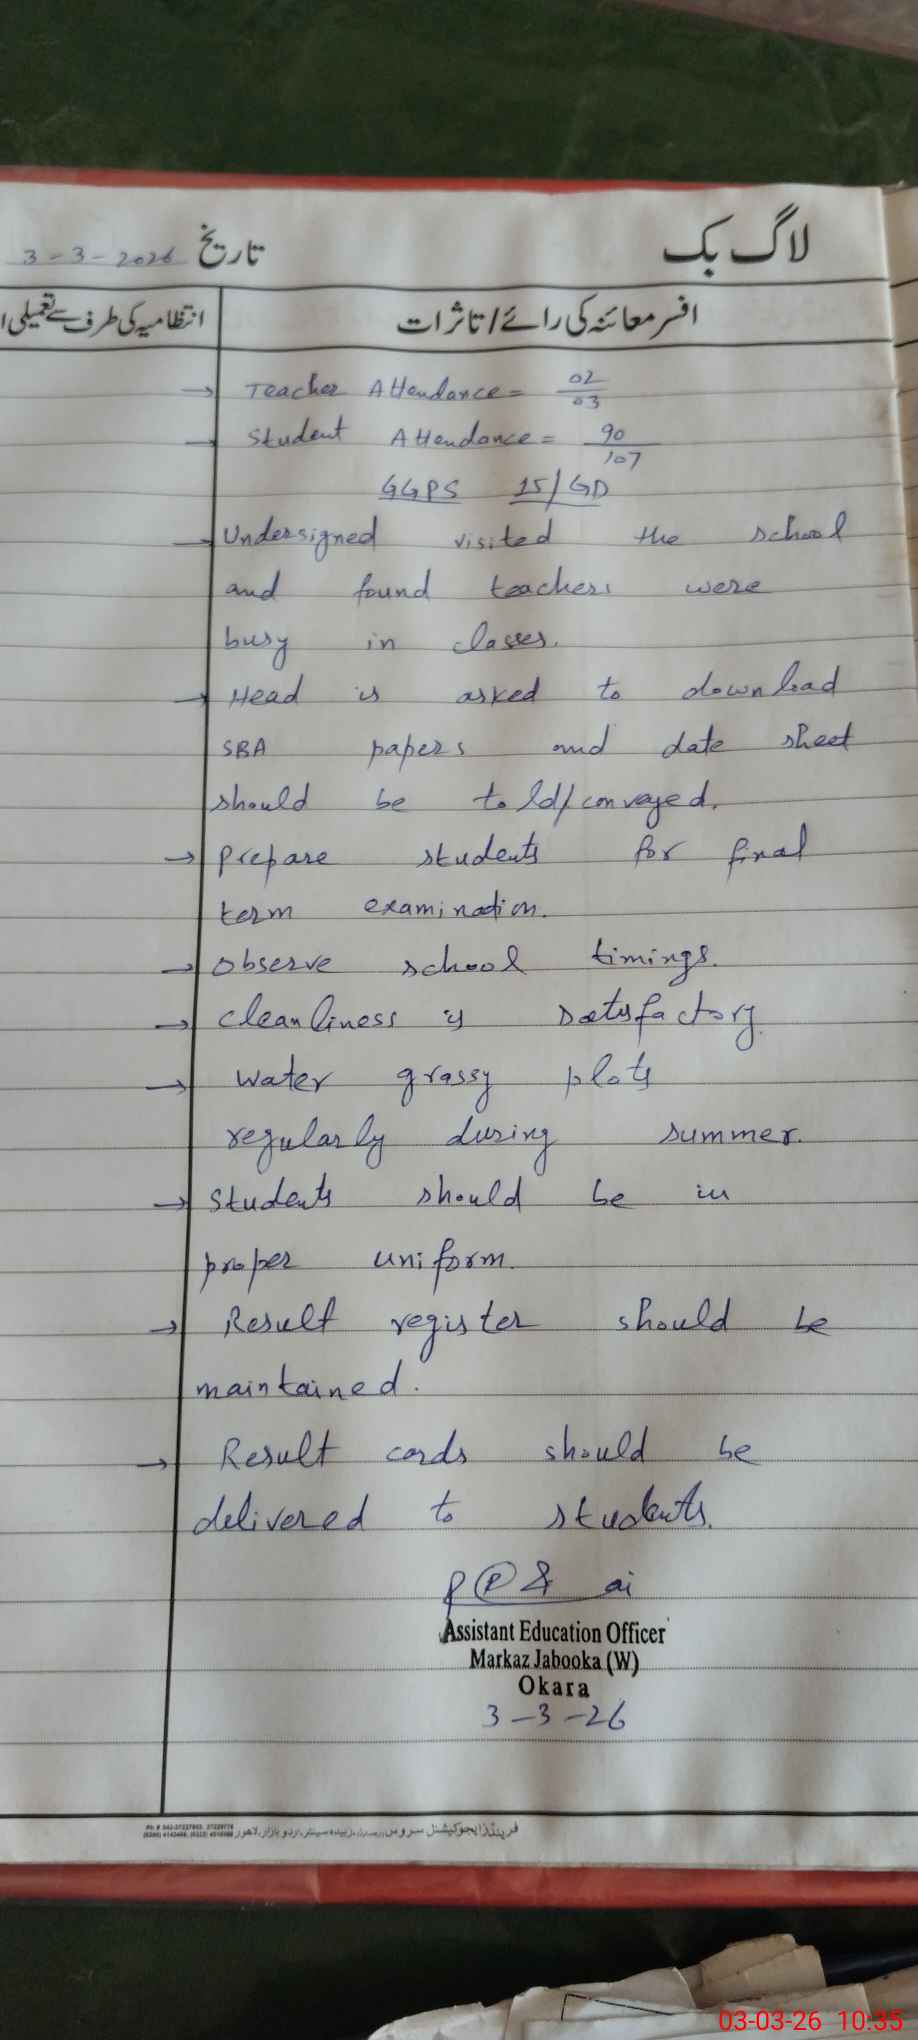 لاگ بک
تاریخ 3-3-2026
افسر معائنہ کی رائے / تاثرات
انتظامیہ کی طرف سے تعمیلی
→ Teacher Attendance = 02/03
→ Student Attendance = 90/107
GGPS 15/GD
→ Undersigned visited the school
and found teachers were
busy in classes.
→ Head is asked to download
SBA papers and date sheet
should be told/conveyed.
→ Prepare students for final
term examination.
→ Observe school timings.
→ cleanliness is satisfactory.
→ Water grassy plots
regularly during summer.
→ Students should be in
proper uniform.
→ Result register should be
maintained.
→ Result cards should be
delivered to students.
Assistant Education Officer
Markaz Jabooka (W)
Okara
3-3-26
فرینڈز ایجوکیشنل سروس اردو بازار، لاہور
03-03-26 10:35